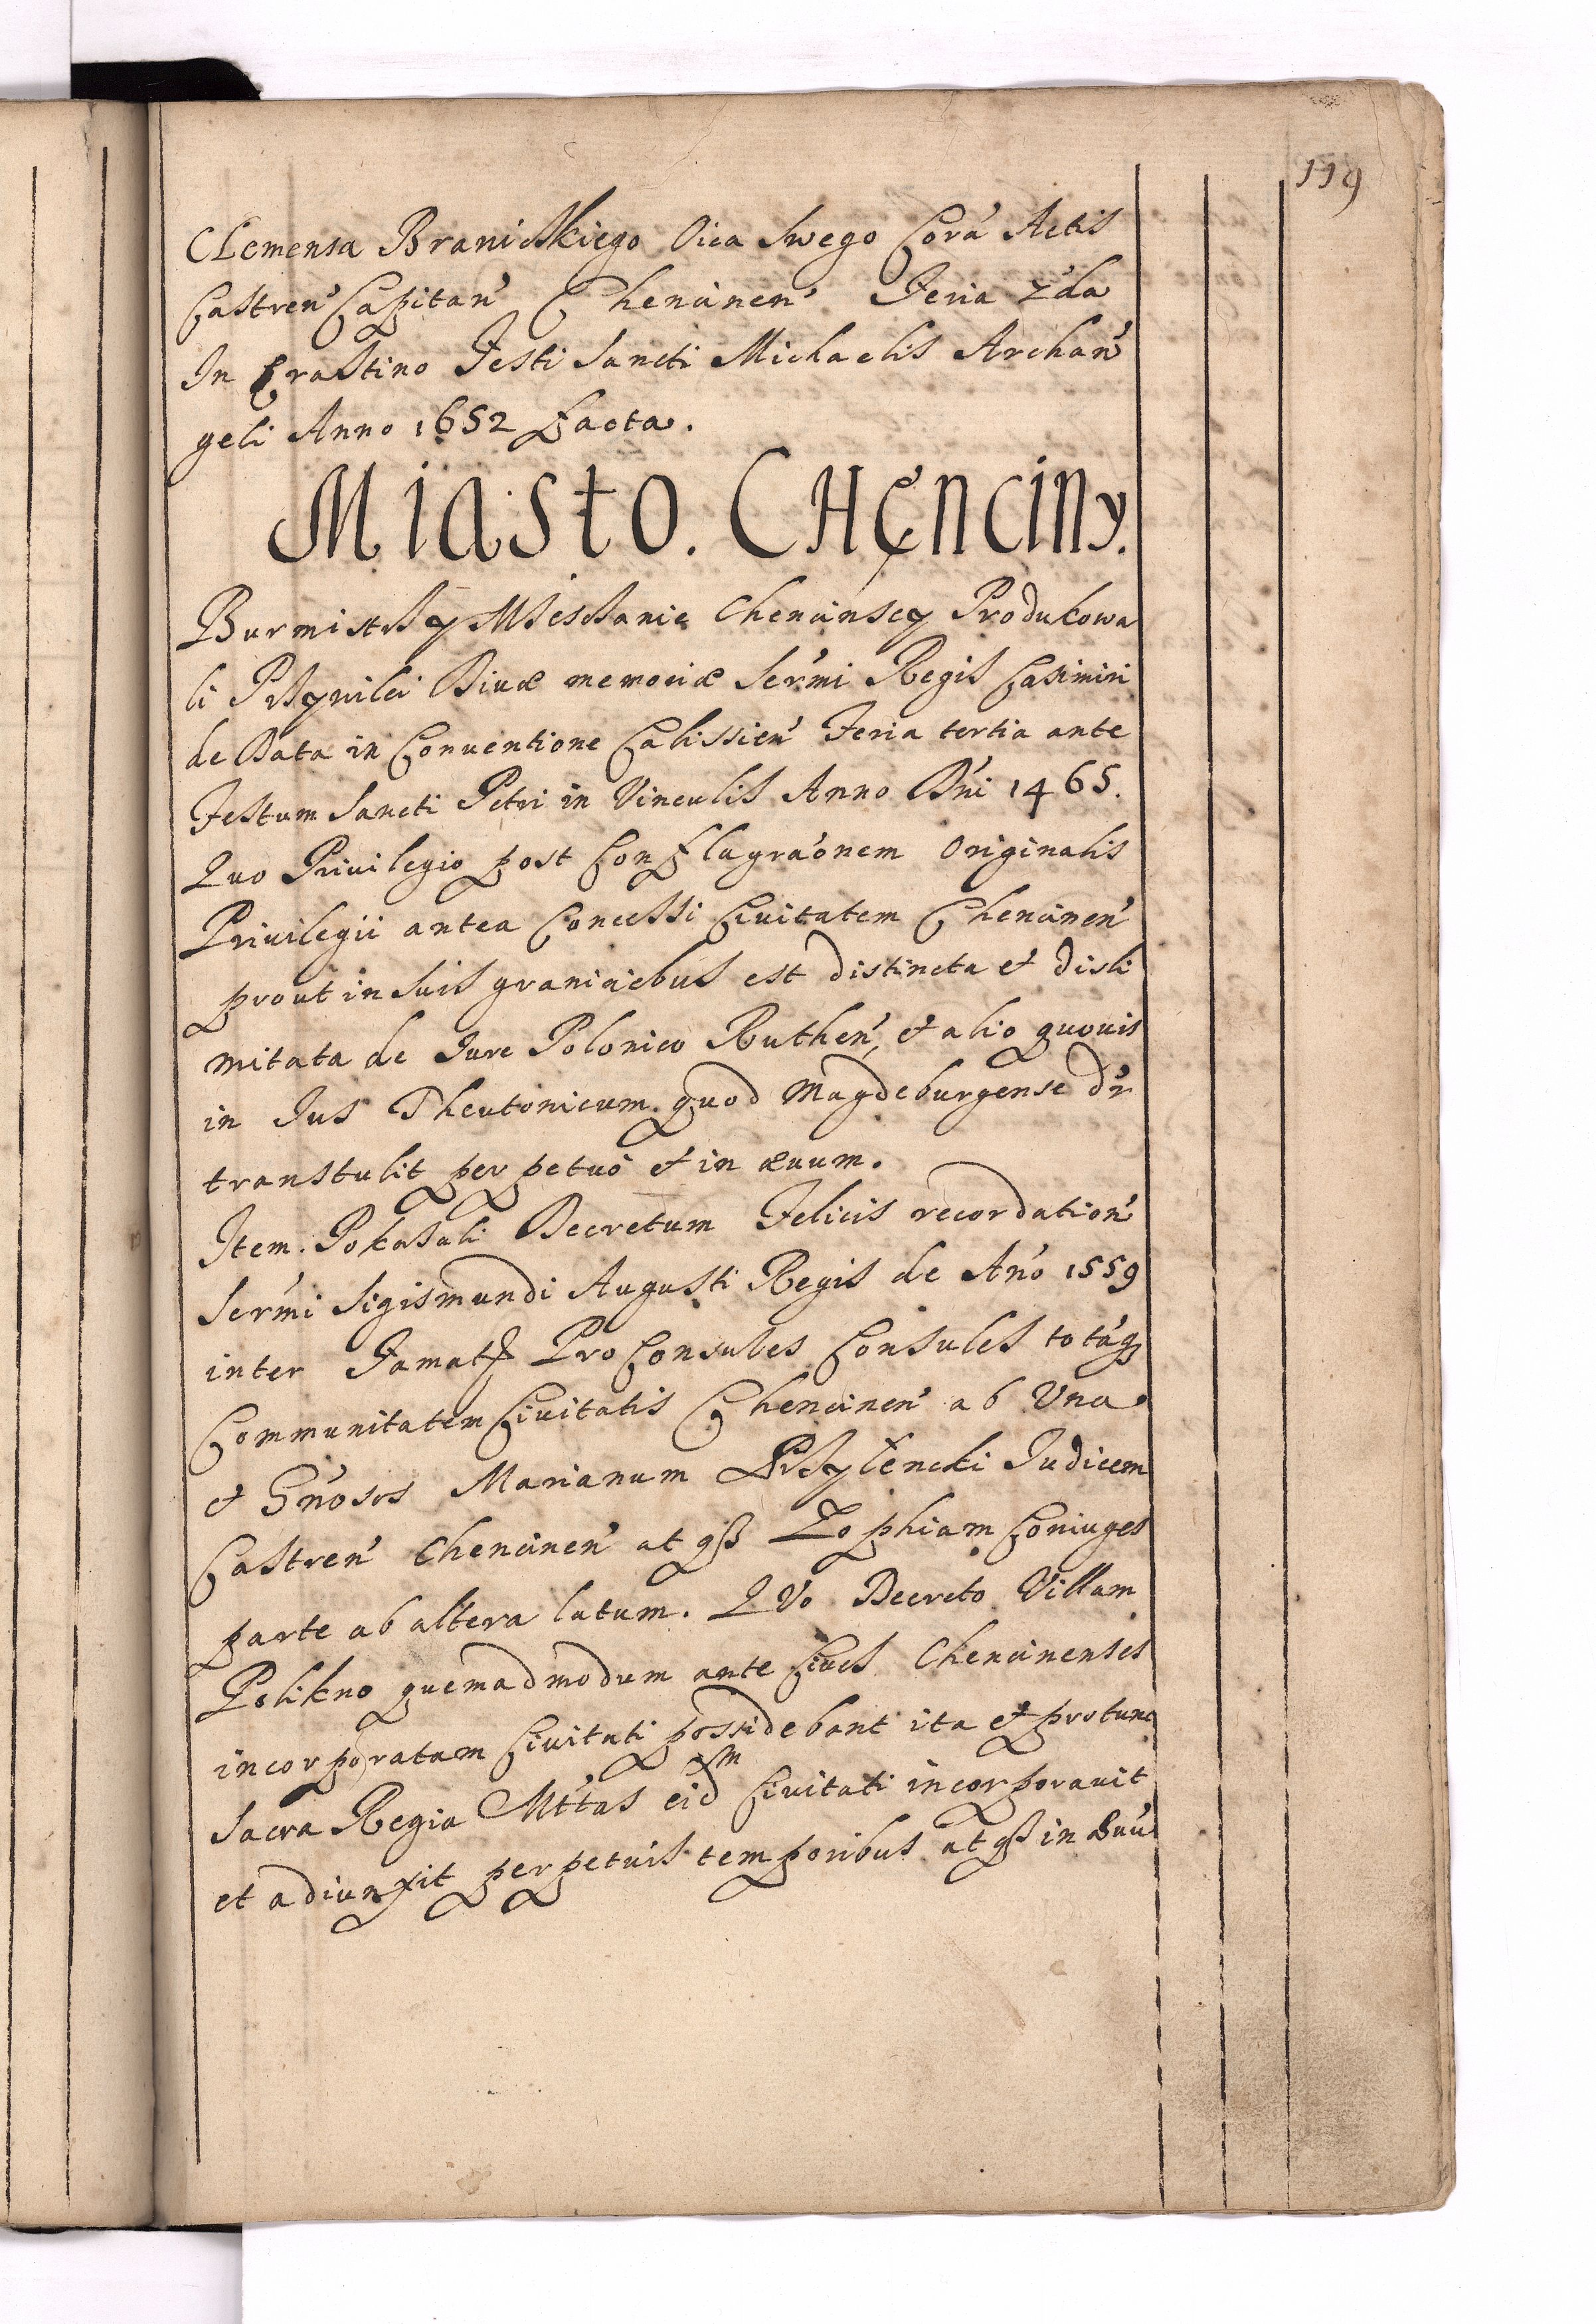 119
Clemensa Branickiego Oica swego Corá Actis
Castren' Capitan' Chencinen' Feria 2da
In Crastino Festi Sancti Michaelis Archan
geli Anno 1652 facta.
Miasto. CHęnciny.
Burmistrzy Mieszczanie Chencinscy Produkowa
li Przywilei Divæ memoriæ Ser'mi Regis Casimiri
de Data in Conventione Calissien' Feria tertia ante
Festum Sancti Petri in Vinculis Anno D'ni 1465.
Quo Privilegio post Conflagra'onem Originalis
Privilegii antea Concessi Civitatem Chencinen'
prout in suis graniciebus est distincta et disli
mitata de Iure Polonico Ruthen', et alio quovis
in Ius Theutonicum quod Magdeburgense d'r
transtulit perpetuò et in ævum.
Item. Pokazali Decretum Felicis recordation'
Ser'mi Sigismundi Augusti Regis de An'o 1559
inter Famat Pro Consules Consules totáq
Communitatem Civitatis Chencinen' ab Una
et G'nosos Marianum Przyłencki Iudicem
Castren' Chencinen' atq Zophiam Coniuges
parte ab altera latum. QVo Decreto Villam
Polikno quemadmodum ante Cives Chencinenses
incorporatam Civitati possidebant ita et protunc
Sacra Regia M'ttas eidm Civitati incorporavit
et adiunxit perpetuis temporibus atq in ævú